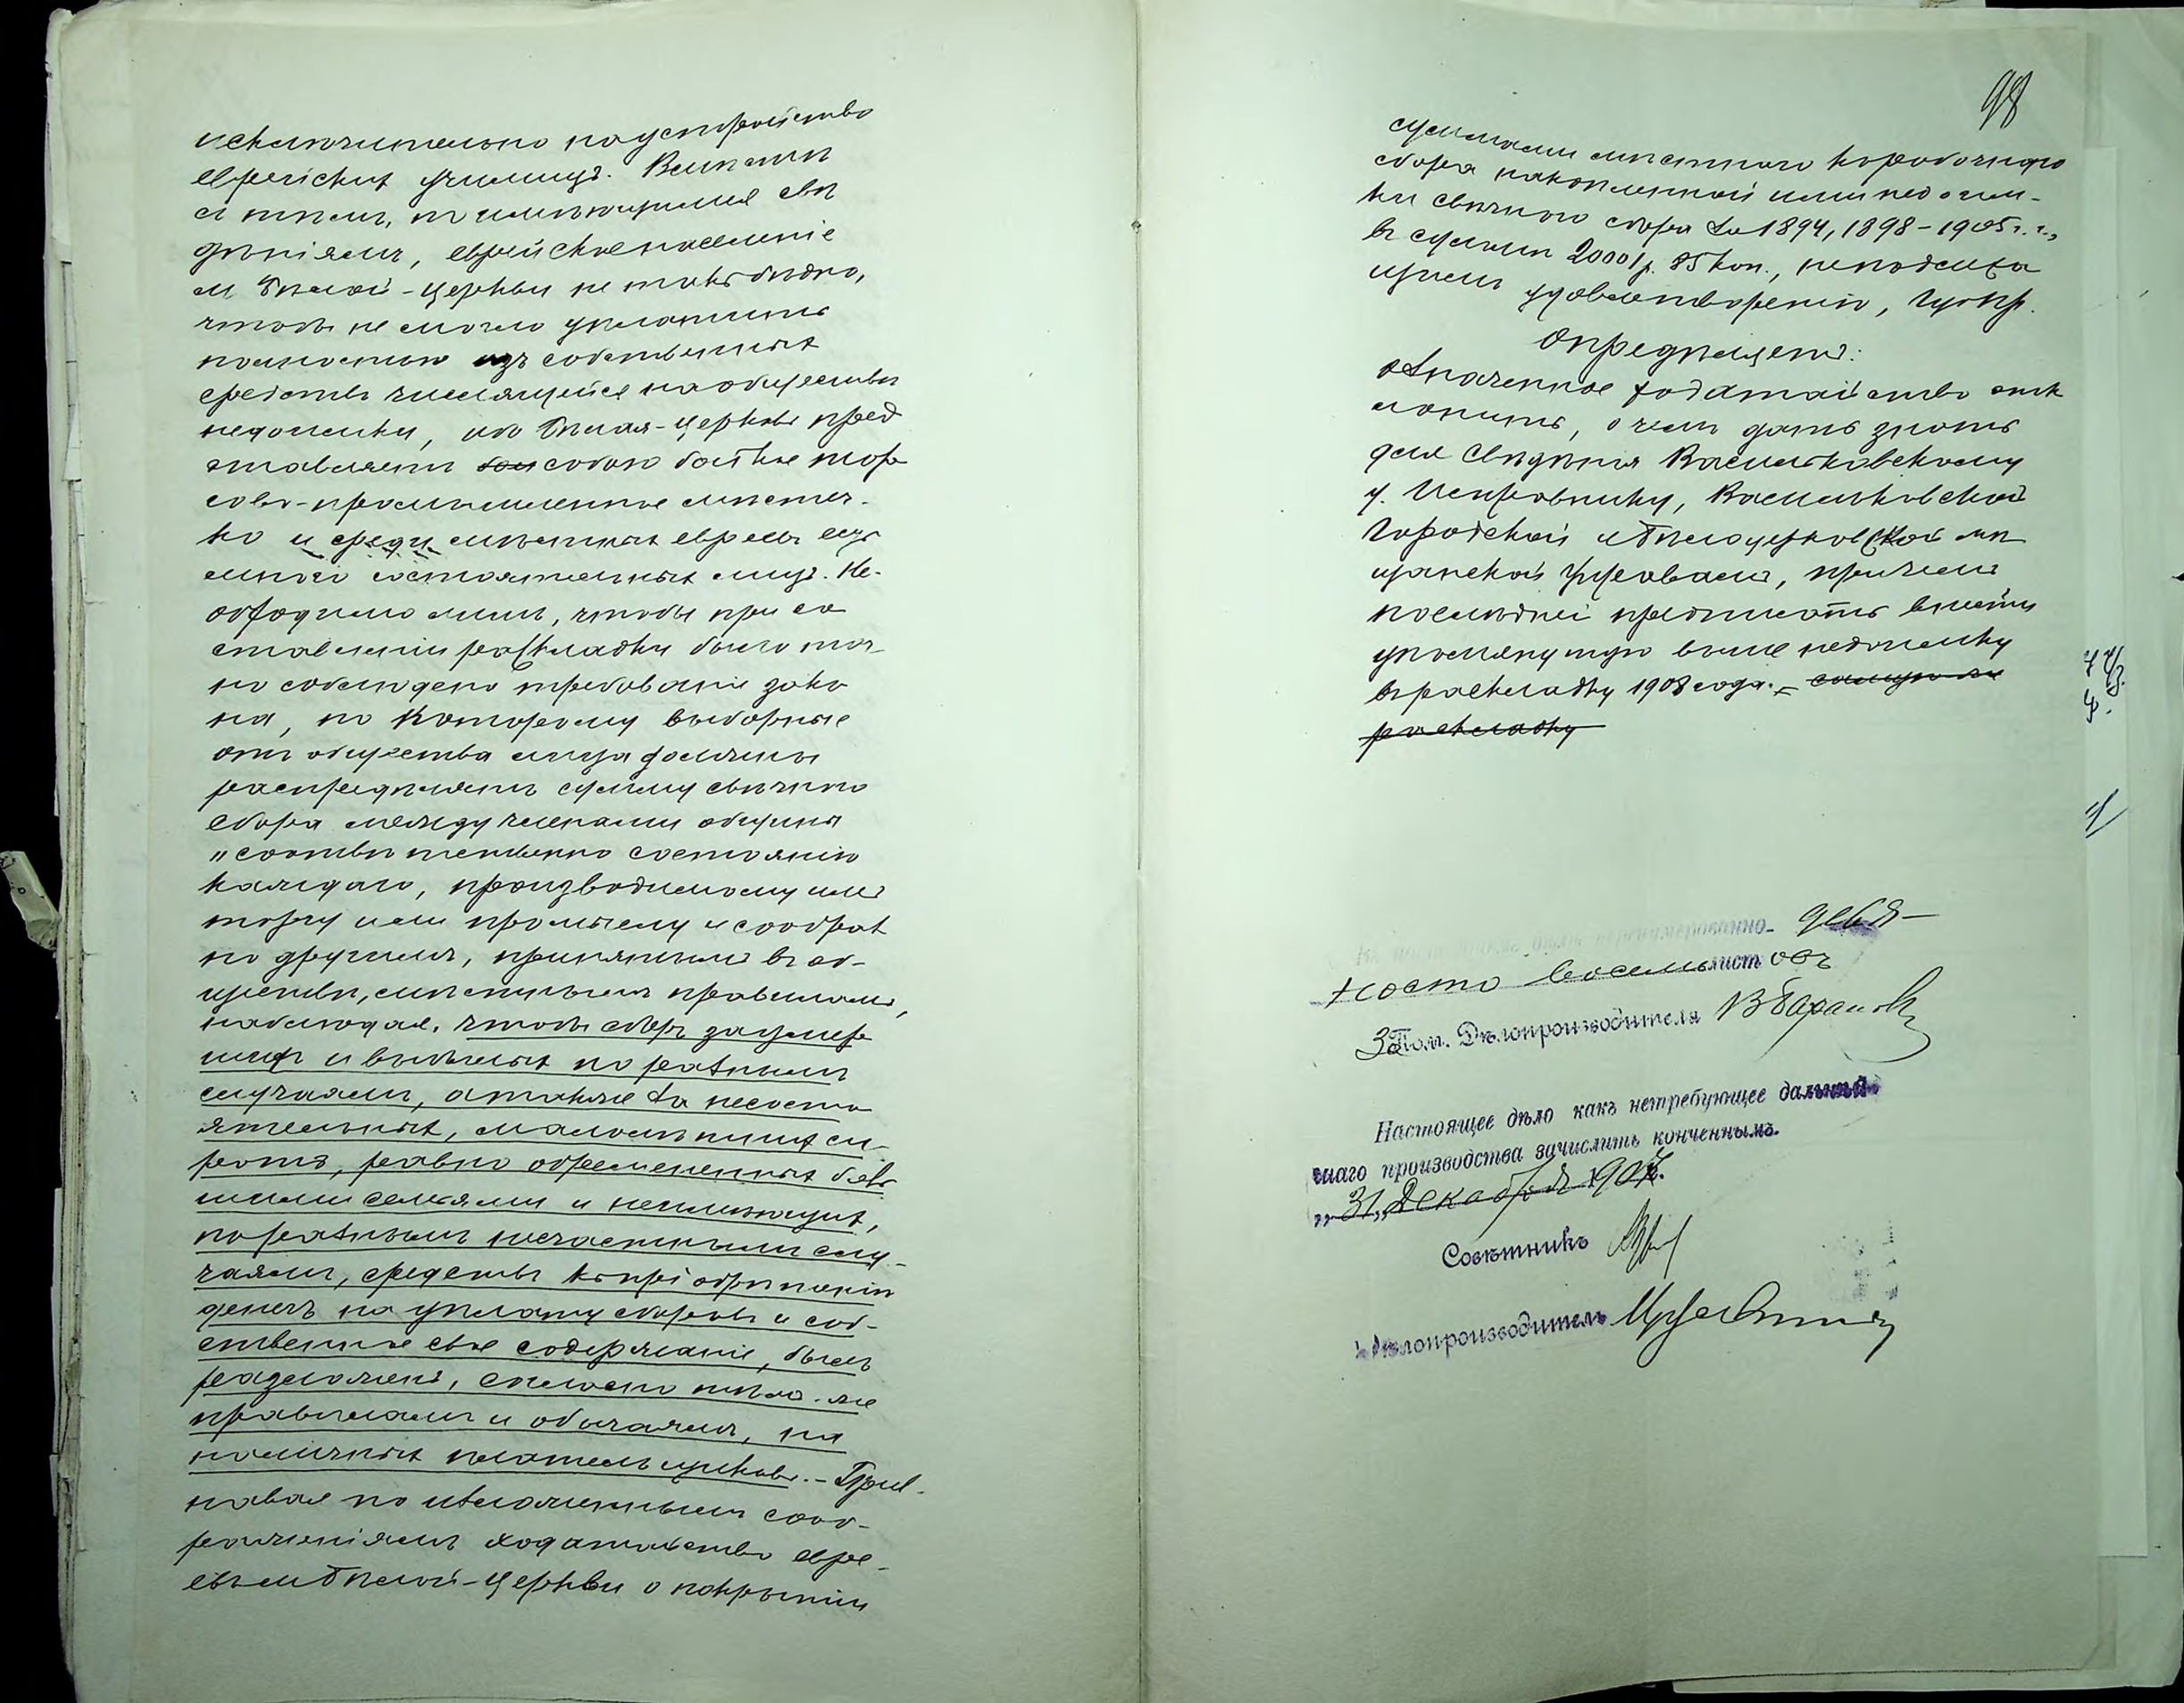 исключительно на устройство
еврейских училищъ. Вместе
съ темъ, по имеющимся све
дѣніямъ, еврейское населеніе
м. Белой-Церкви не такъ бедно,
чтобы не могло уплатить
полностью изъ собственныхъ
средствъ числящейся на обществе
недоимки, ибо Белая-Церковь пред
ставляетъ собою бойкое торг
гово-промышленное местеч-
ко и среди местныхъ евреевъ есть
много состоятельныхъ лицъ. Не-
обходимо лишь, чтобы при со
ставленіи раскладки было точ-
но соблюдено требованіе зако
на, по которому выборные
отъ общества лица должны
распределять сумму свечного
сбора между членами общины
"соответственно состоянію
каждаго, производимому имъ
торгу или промыслу и сообраз
но другимъ, принятымъ въ об-
ществе, местнымъ правиламъ,
наблюдая, чтобы сборъ за умер
шихъ и выбылыхъ по разнымъ
случаямъ, а также за несосто
ятельныхъ, малолетнихъ си-
ротъ, равно обремененныхъ боль
шими семьями и неимеющихъ,
по разнымъ несчастнымъ слу-
чаямъ, средствъ къ пріобретенію
денегъ на уплату сборовъ и соб-
ственное свое содержаніе, былъ
разложенъ, согласно темъ-же
правиламъ и обычаямъ, на
наличныхъ плательщиковъ. - Приз-
навая по изложеннымъ сооб-
раженіямъ ходатайство евре-
евъ м. Белой-Церкви о покрытіи
98
суммами местнаго коробочнаго
сбора накопленной ими недоим-
ки свечного сбора за 1894, 1898-1905 г.г.,
въ сумме 20001 р. 85 коп., неподлежа
щимъ удовлетворенію, Губ. Пр.
Определяетъ:
означенное ходатайство отк
лонить, о чемъ дать знать
для сведенія Васильковскому
у. Исправнику, Васильковской
Городской и Белоцерковской ме
щанской Управамъ, причемъ
последней предписать внести
упомянутую выше недоимку
въ раскладку 1908 года.
раскладку
девя-
носто восемь листовъ
За Пом. Дѣлопроизводителя
Настоящее дѣло какъ нетребующее дальнѣй-
шаго производства зачислить конченнымъ.
"31" Декабря 1907.
Совѣтникъ
Дѣлопроизводитель